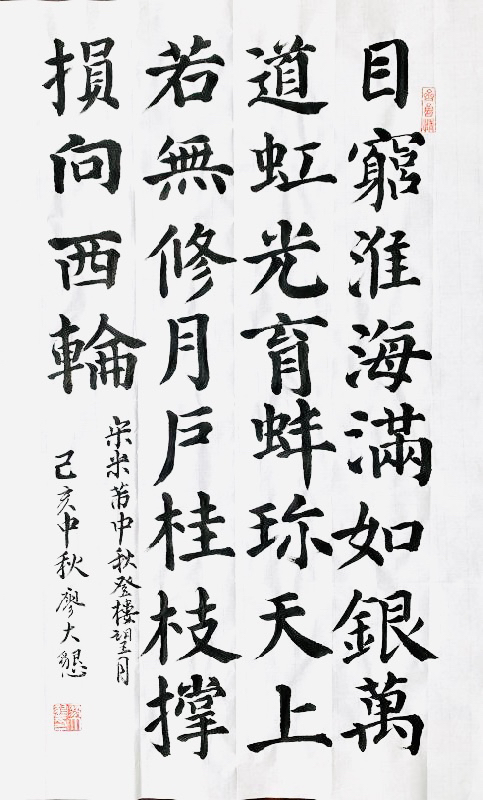 目窮淮海滿如銀萬
道虹光育蚌珎天上
若無修月戶桂枝撐
損向西輪
宋米芾中秋登樓望月
己亥中秋廖大懇